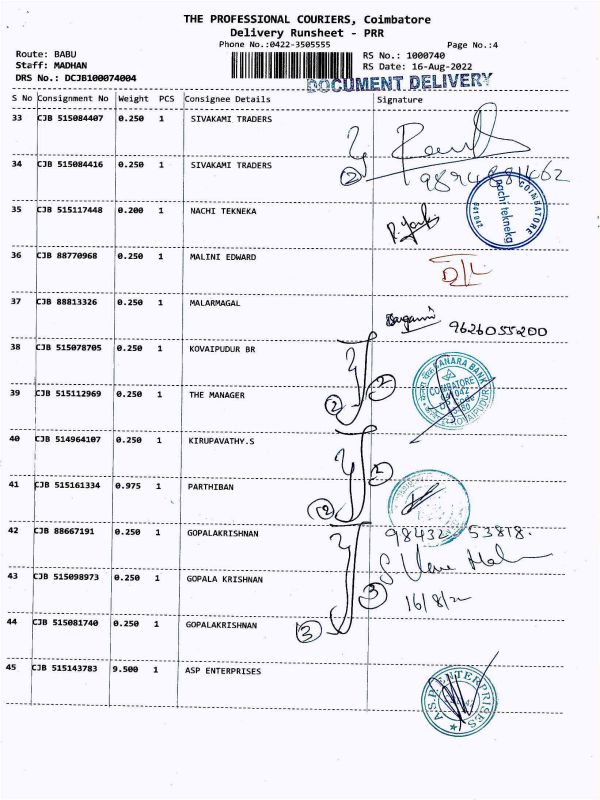 THE PROFESSIONAL COURIERS, Coimbatore
Delivery Runsheet - PRR
Phone No.:0422-3505555 Page No.:4
Route: BABU RS No.: 1000740
Staff: MADHAN RS Date: 16-Aug-2022
DRS No.: DCJB100074004 DOCUMENT DELIVERY
S No Consignment No Weight PCS Consignee Details Signature
33 CJB 515084407 0.250 1 SIVAKAMI TRADERS
34 CJB 515084416 0.250 1 SIVAKAMI TRADERS
2
35 CJB 515117448 0.200 1 NACHI TEKNEKA
COIMBATORE
641 042
36 CJB 88770968 0.250 1 MALINI EDWARD
37 CJB 88813326 0.250 1 MALARMAGAL
9626055200
38 CJB 515078705 0.250 1 KOVAIPUDUR BR
2
CANARA BANK
COIMBATORE
39 CJB 515112969 0.250 1 THE MANAGER
2
KOVAIPUDUR
40 CJB 514964107 0.250 1 KIRUPAVATHY.S
2
41 CJB 515161334 0.975 1 PARTHIBAN
2
42 CJB 88667191 0.250 1 GOPALAKRISHNAN
98432 53818.
43 CJB 515098973 0.250 1 GOPALA KRISHNAN
3
16/8/22
44 CJB 515081740 0.250 1 GOPALAKRISHNAN
3
45 CJB 515143783 9.500 1 ASP ENTERPRISES
A.S.P. ENTERPRISES